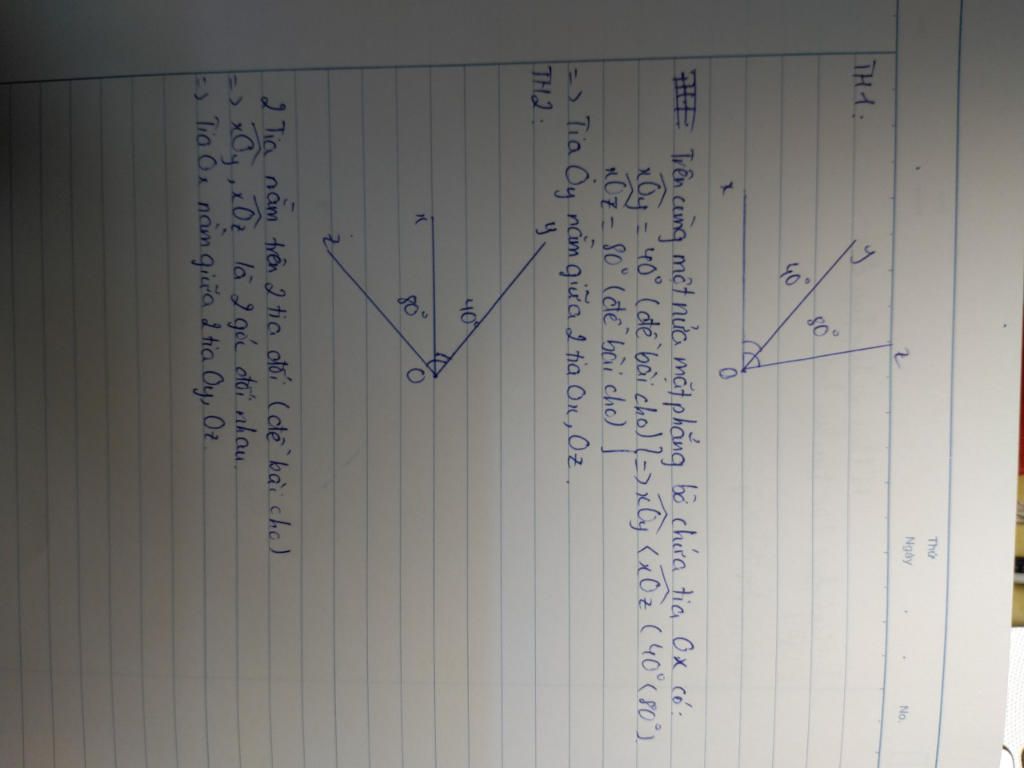 Thứ
Ngày
No.
TH1:
z
y
40°
80°
x
O
Trên cùng một nửa mặt phẳng bờ chứa tia Ox có:
xOy = 40° (đề bài cho) ] => xOy < xOz (40° < 80°)
xOz = 80° (đề bài cho) ]
=> Tia Oy nằm giữa 2 tia Ox, Oz.
TH2:
y
40°
x
80°
O
z
2 Tia nằm trên 2 tia đối (đề bài cho)
=> xOy, xOz là 2 góc đối nhau.
=> Tia Ox nằm giữa 2 tia Oy, Oz.